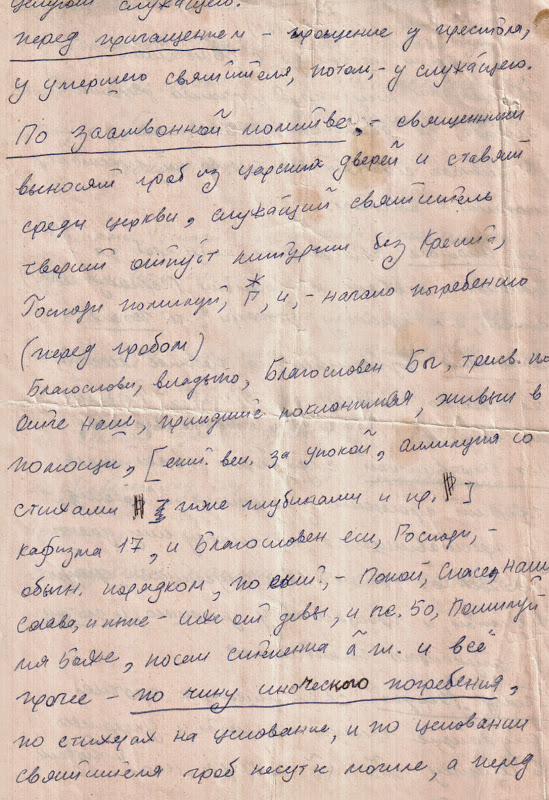 целуют служащего.
перед причащением – прощение у престола,
у умершего святителя, потом, – у служащего.
По заамвонной молитве, – священники
выносят гроб из царских дверей и ставят
среди церкви, служащий святитель
творит отпуст литургии без Креста,
Господи помилуй, Г̃*, и, – начало погребению
(перед гробом)
Благослови, владыко, Благословен Бг, трисв. по
Отче наш, приидите поклонимся, живый в
помощи, [ект. вел. за упокой, аллилуия со
стихами глубинами и пр. ]
кафизма 17, и Благословен еси, Господи, –
обычн. порядком, по ект, – Покой, Спасе, наш
слава, и ныне – Иже от девы, и пс. 50, Помилуй
мя Боже, посем степенна а̃ гл. и всё
прочее – по чину иноческого погребения,
по стихерах на целование, и по целовании
святителя гроб несут к могиле, а перед